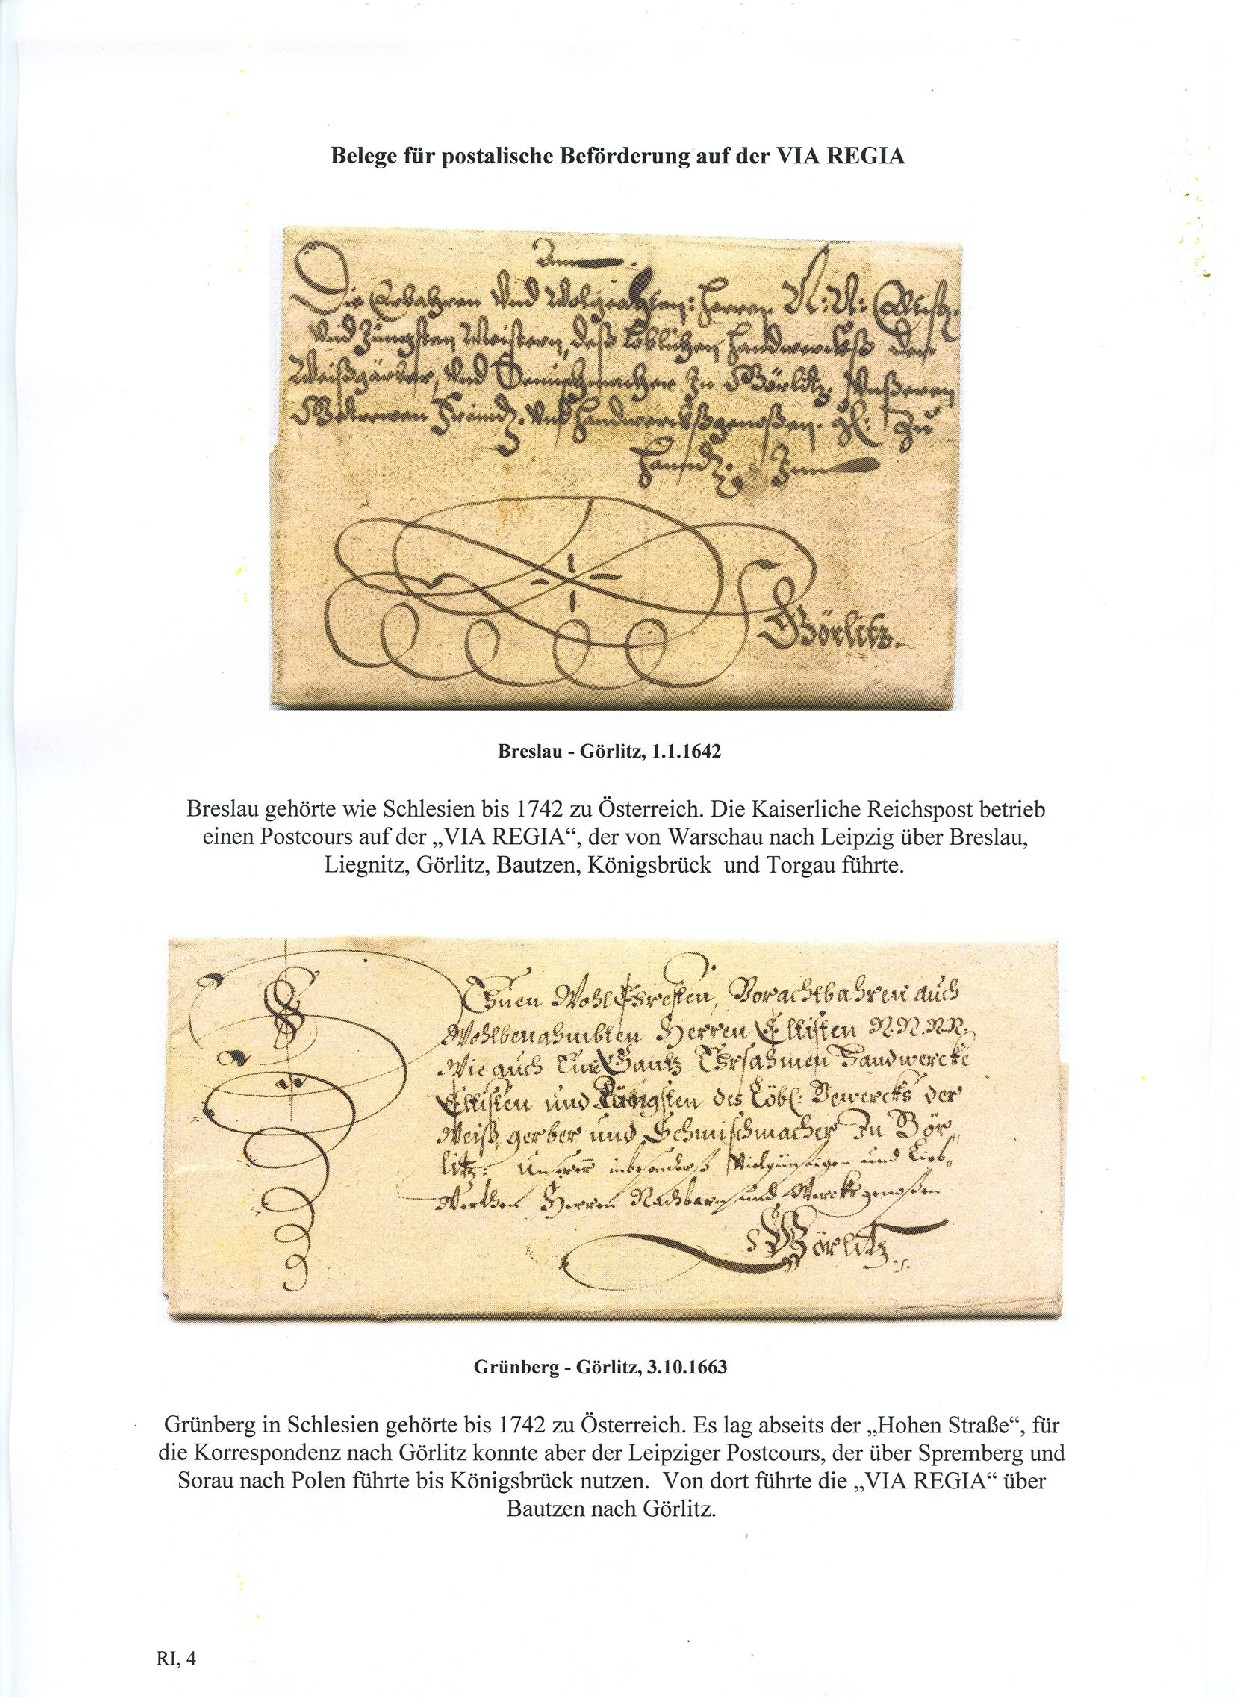 Belege für postalische Beförderung auf der VIA REGIA
Die Erbahren Vnd Wolgeachten: Herren N: N:
Vnd Jüngsten Meistern, deß Löblichen Handwerckß der
Weißgärber, Vnd Zu Görlitz, Vnßeren
Vnd Handwerckßgenoßen. Zu
Görlitz.
Breslau - Görlitz, 1.1.1642
Breslau gehörte wie Schlesien bis 1742 zu Österreich. Die Kaiserliche Reichspost betrieb
einen Postcours auf der „VIA REGIA“, der von Warschau nach Leipzig über Breslau,
Liegnitz, Görlitz, Bautzen, Königsbrück und Torgau führte.
Denen Wohl Ehrvesten, Vorachtbahren auch
Wohlbenahmbten Herren Eltisten N.N.N.N.
Wie auch Einer Gantz Ehrsahmen Handwercke
Eltisten und des Löbl: Gewercks der
Weiß gerber und Sehmischmacher Zu Gör,
litz. Unsern und Lieb,
Werthen Herren Nachbarn und Wercksgenoßen
Görlitz.
Grünberg - Görlitz, 3.10.1663
Grünberg in Schlesien gehörte bis 1742 zu Österreich. Es lag abseits der „Hohen Straße“, für
die Korrespondenz nach Görlitz konnte aber der Leipziger Postcours, der über Spremberg und
Sorau nach Polen führte bis Königsbrück nutzen. Von dort führte die „VIA REGIA“ über
Bautzen nach Görlitz.
RI, 4